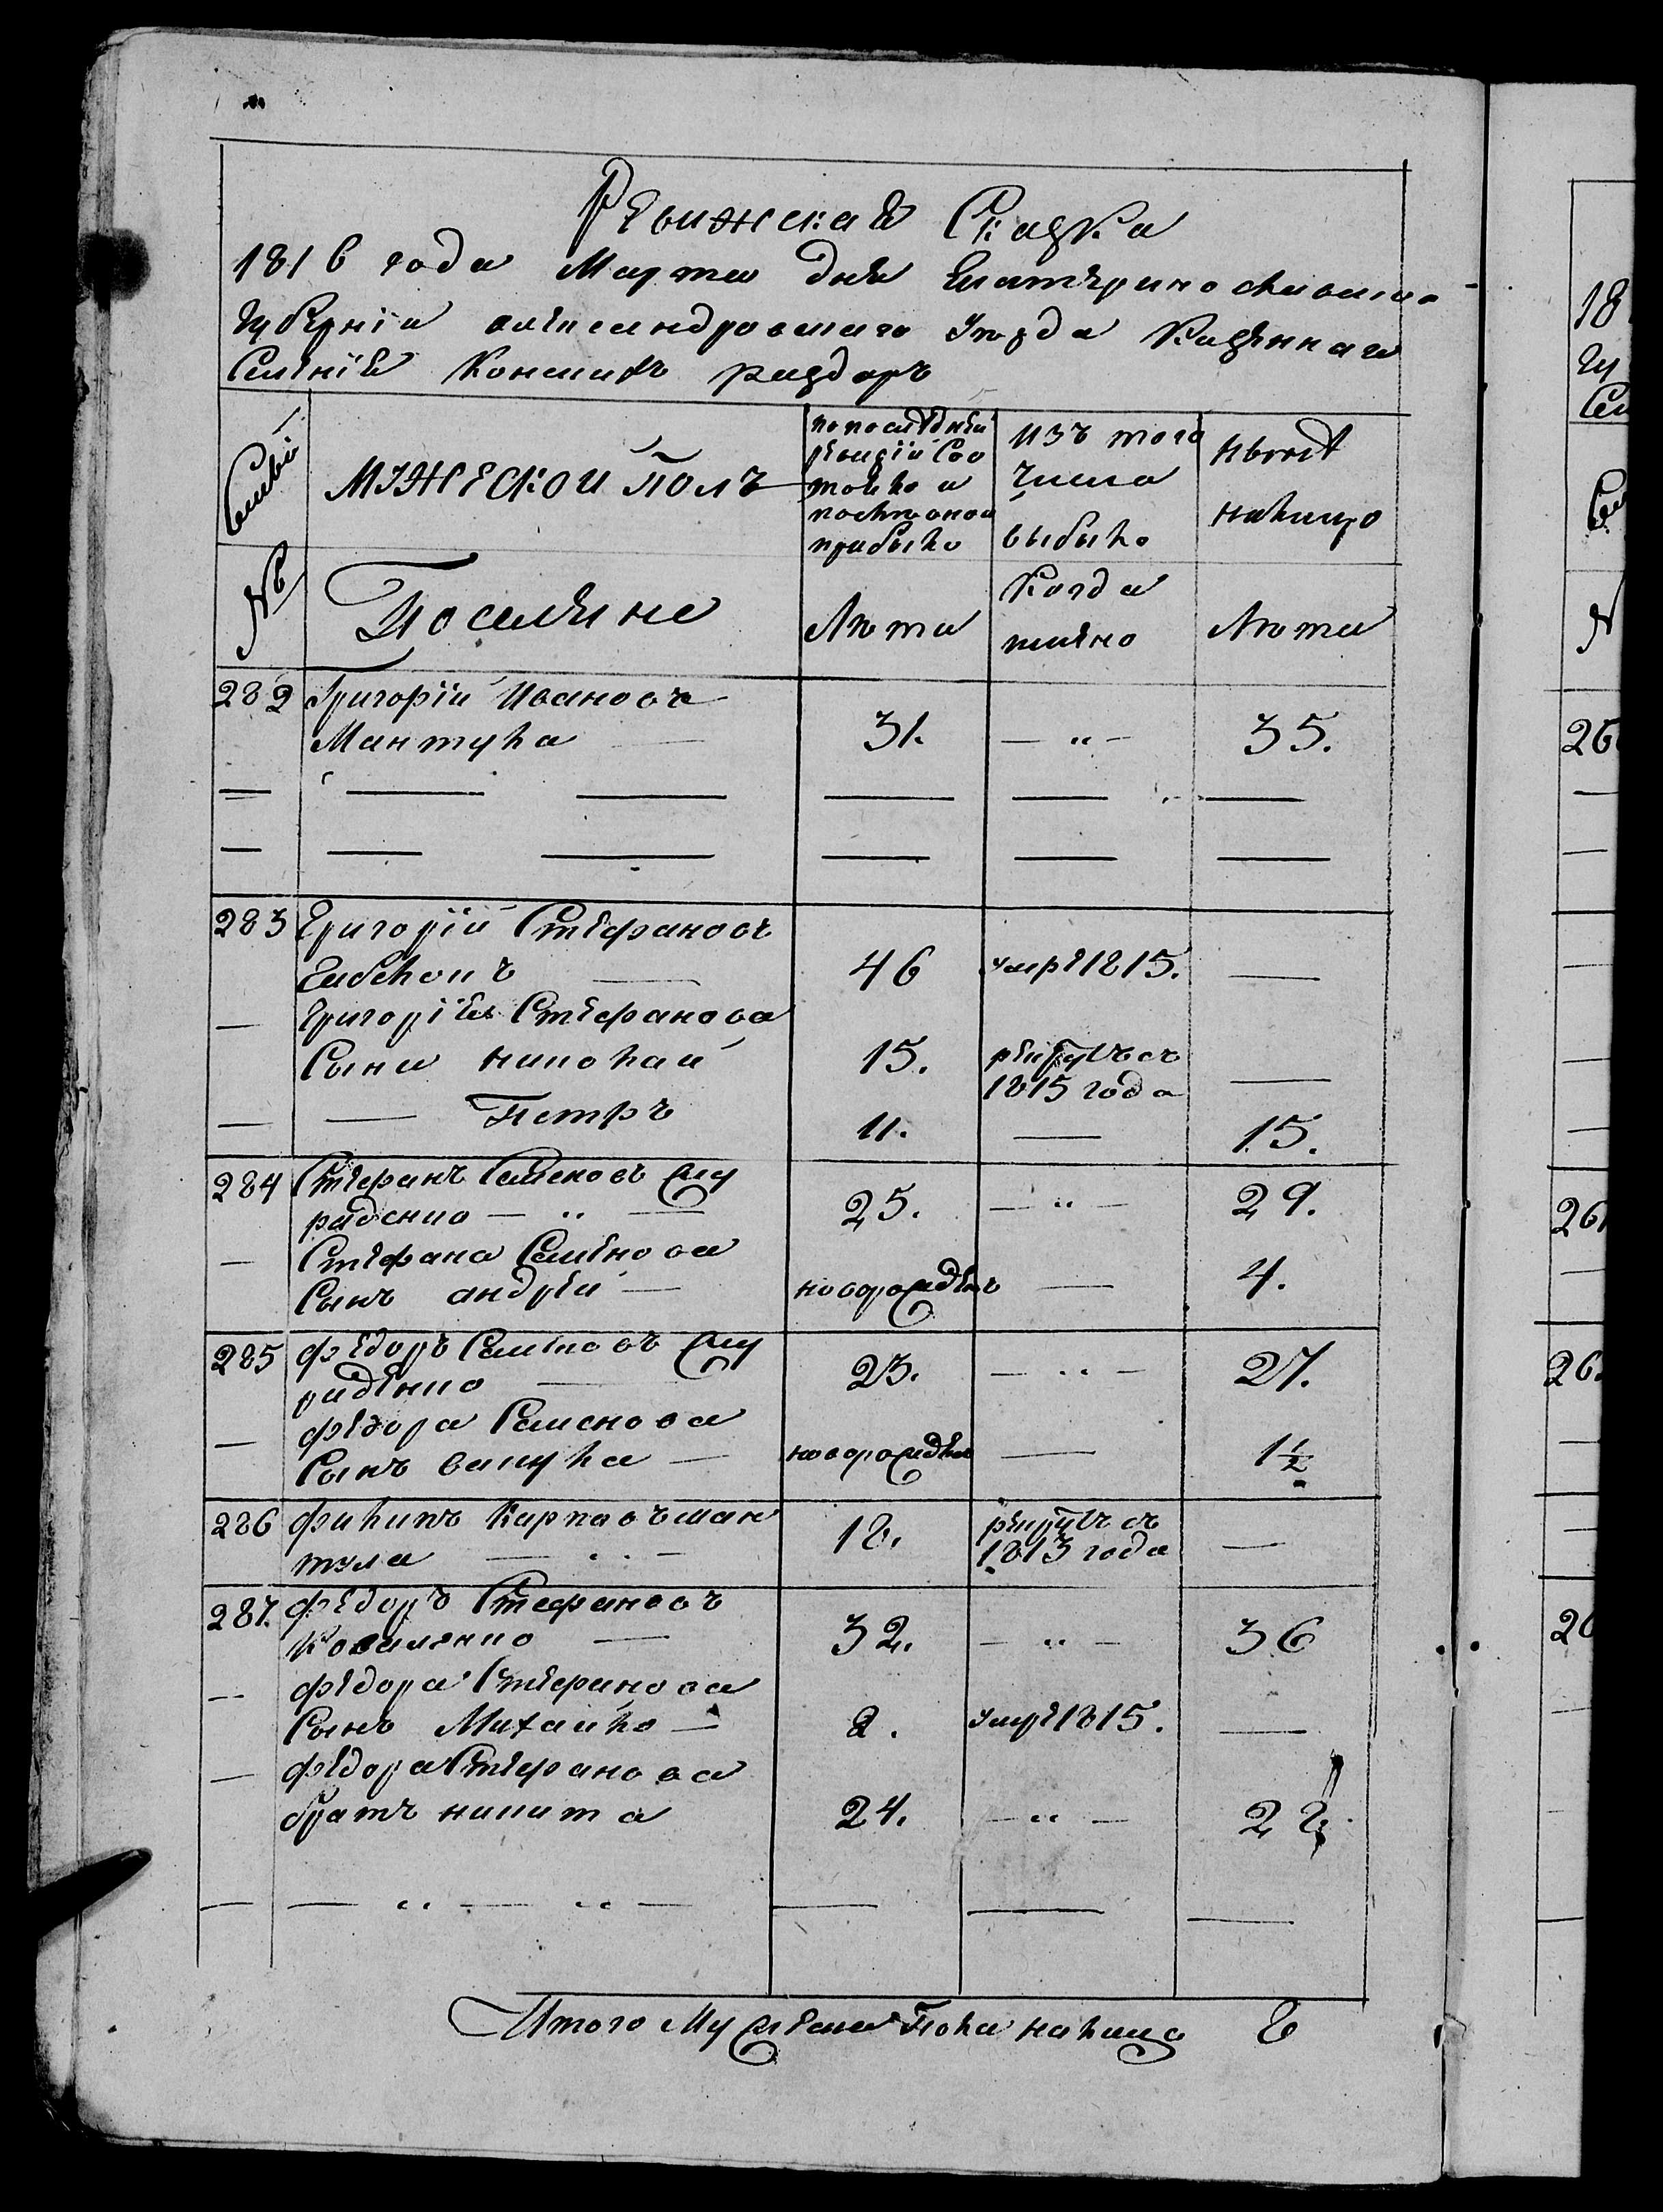 Ревижская Сказка
1816 года Марта дня Екатеринославской
Губернiи александровскаго Уезда Казеннаго
Селенiя Конскихъ раздоръ
Семьи
МУЖЕСКОЙ ПОЛЪ
по последней
ревизiи Сос
тояло и
после оной
прибыло
изъ того
числа
выбыло
ныне
налицо
№
Поселяне
Лета
Когда
имянно
Лета
282 Григорiй Ивановъ
Мантула — 31. — „ — 35.
— — — — — —
— — — — — —
283 Григорiй Стефановъ
— 46 умре 1815. —
— Григорiя Стефанова
Сыни николай 15. рекрутъ съ
1815 года —
— — Петръ 11. — 15.
284 Стефанъ Семеновъ Жу
равенко — „ — 25. — „ — 29.
— Стефана Семенова
Сынъ андрей — новорожденъ — 4.
285 федоръ Семеновъ Жу
равенко — 23. — „ — 27.
— федора Семенова
Сынъ вакула — новорожденъ — 1½
286 филипъ Карповъ ман
тула — „ — 18. рекрутъ съ
1813 года —
287. федоръ Стефановъ
Коваленко — 32. — „ — 36
— федора Стефанова
Сынъ Михайло — 2. умре 1815. —
— федора Стефанова
братъ никита 24. — „ — 28.
— — „ — „ — — — —
Итого Мужеска Пола налицо 8
18
Гу
Сел
Се
№
26
26
26
26